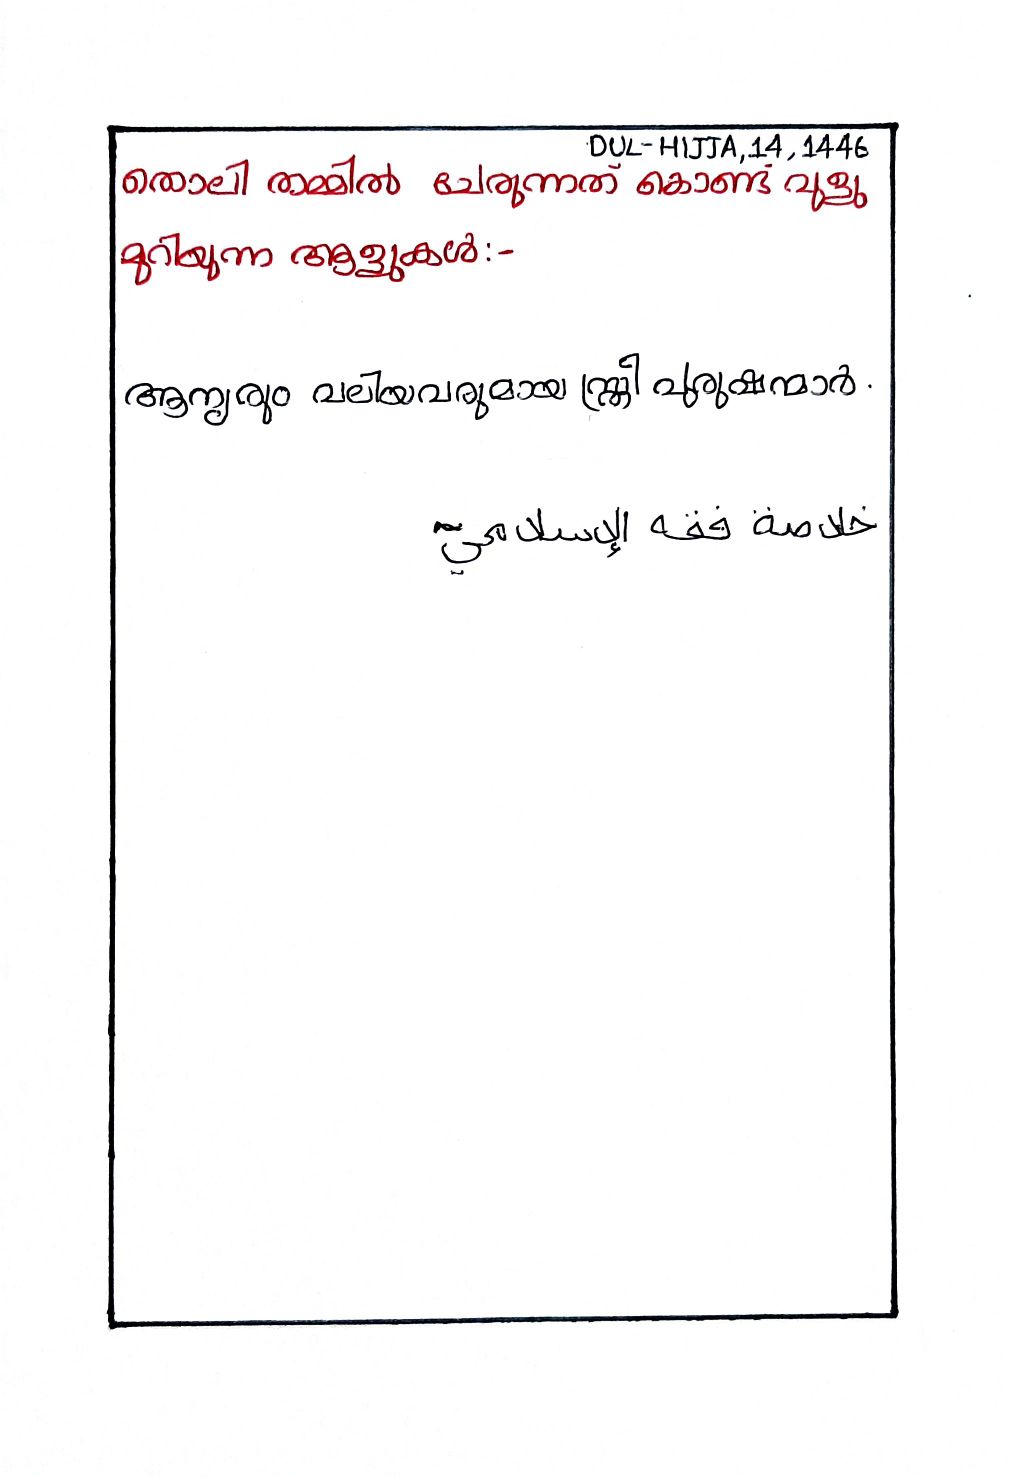 DUL-HIJJA,14,1446
തൊലി തമ്മിൽ ചേരുന്നത് കൊണ്ട് വുളു
മുറിയുന്ന ആളുകൾ:-
ആന്യരും വലിയവരുമായ സ്ത്രീ പുരുഷന്മാർ.
خلاصة فقه الإسلامي